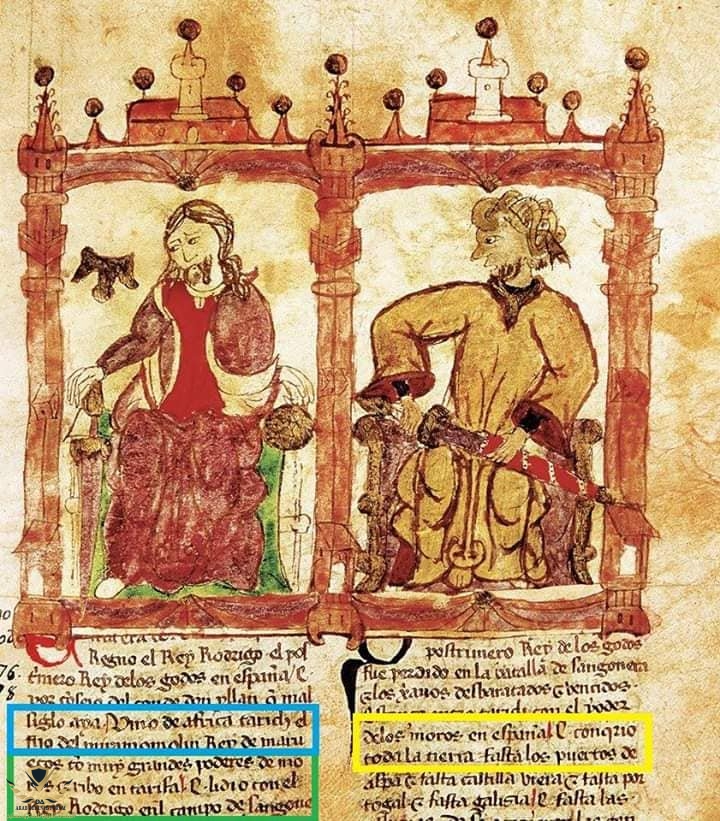 Regno el Rey Rodrigo el pos
t'mero Rey delos godos en españa / E
por cõsejo del conde don yllan q̃ mal
siglo aya / Vino de africa tarich el
fijo del miramomolin Rey de marru
ecos cõ muy grandes poderes de mo
s arribo en tarifa / E lidio con el
Rey Rodrigo enl canpo de sangone
postrimero Rey delos godos
fue perdido en la batalla de sangonera
& los xanos desbaratados & vencidos
con el poder
delos moros en españa / E conqrio
toda la tierra fasta los puertos de
aspa & fasta castilla vieja & fasta por
togal & fasta galisia / E fasta las
76.
8